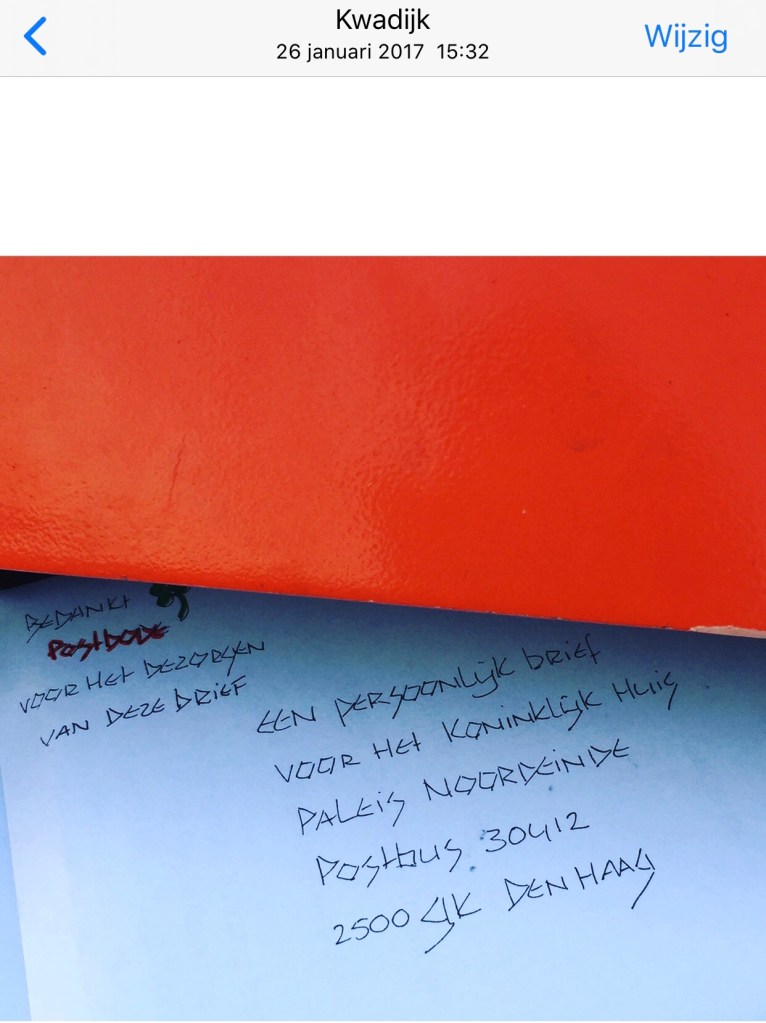 Kwadijk
26 januari 2017 15:32
Wijzig
BEDANKT
POSTBODE
VOOR HET BEZORGEN
VAN DEZE BRIEF
EEN PERSOONLIJK BRIEF
VOOR HET KONINKLIJK HUIS
PALEIS NOORDEINDE
POSTBUS 30412
2500 GK DEN HAAG